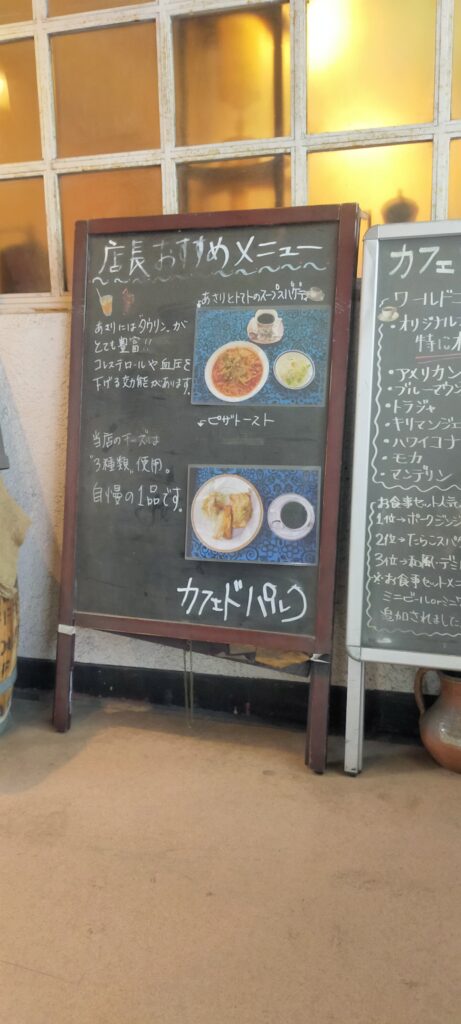 店長おすすめメニュー
あさりとトマトのスープスパゲティ
あさりには"タウリン"が
とても豊富!!
コレステロールや血圧を
下げる効能があります。
ピザトースト
当店のチーズは
"3種類"使用。
自慢の1品です。
カフェドパルク
カフェ
ワールドコ
・オリジナル
特にオ
・アメリカン
・ブルーマウン
・トラジャ
・キリマンジェ
・ハワイコナ
・モカ
・マンデリン
お食事セット人気
1位→ポークジンジ
2位→たらこスパゲ
3位→和風・デミ
※お食事セットメニ
ミニビールorミニワ
追加されました